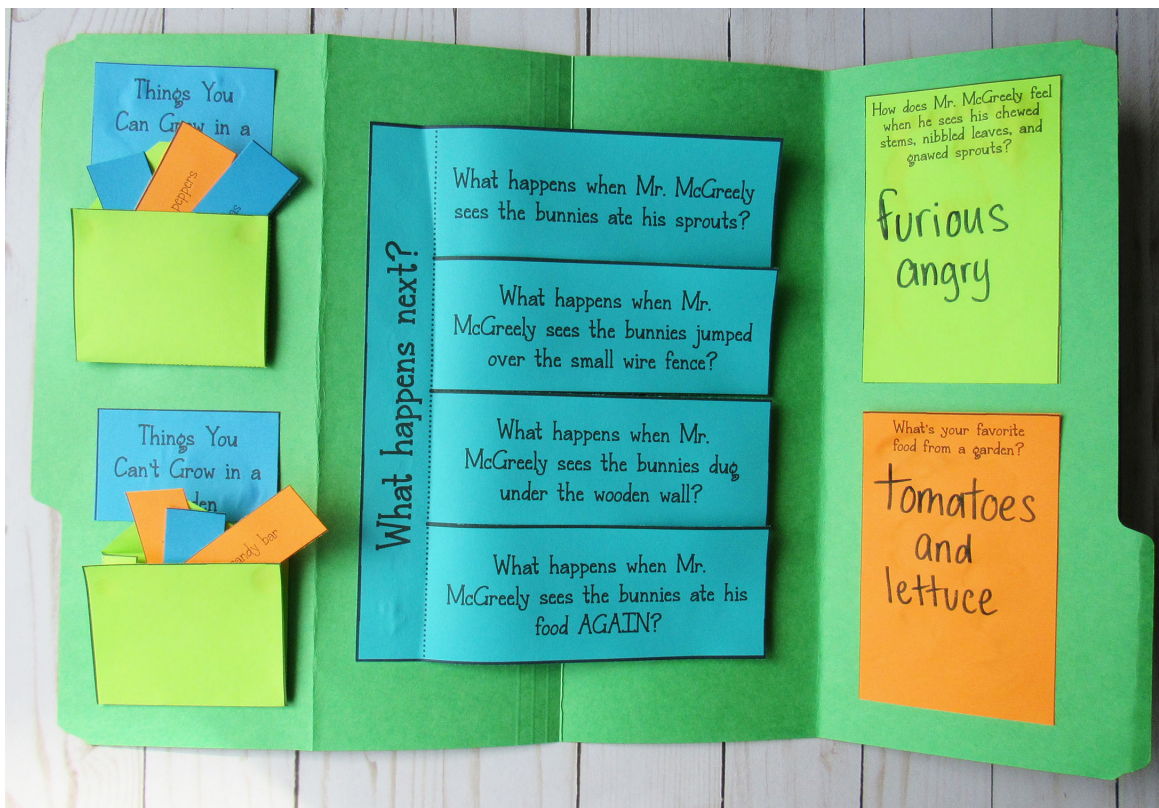 Things You
Can Grow in a
peppers
Things You
Can't Grow in a
candy bar
What happens next?
What happens when Mr. McGreely
sees the bunnies ate his sprouts?
What happens when Mr.
McGreely sees the bunnies jumped
over the small wire fence?
What happens when Mr.
McGreely sees the bunnies dug
under the wooden wall?
What happens when Mr.
McGreely sees the bunnies ate his
food AGAIN?
How does Mr. McGreely feel
when he sees his chewed
stems, nibbled leaves, and
gnawed sprouts?
furious
angry
What's your favorite
food from a garden?
tomatoes
and
lettuce